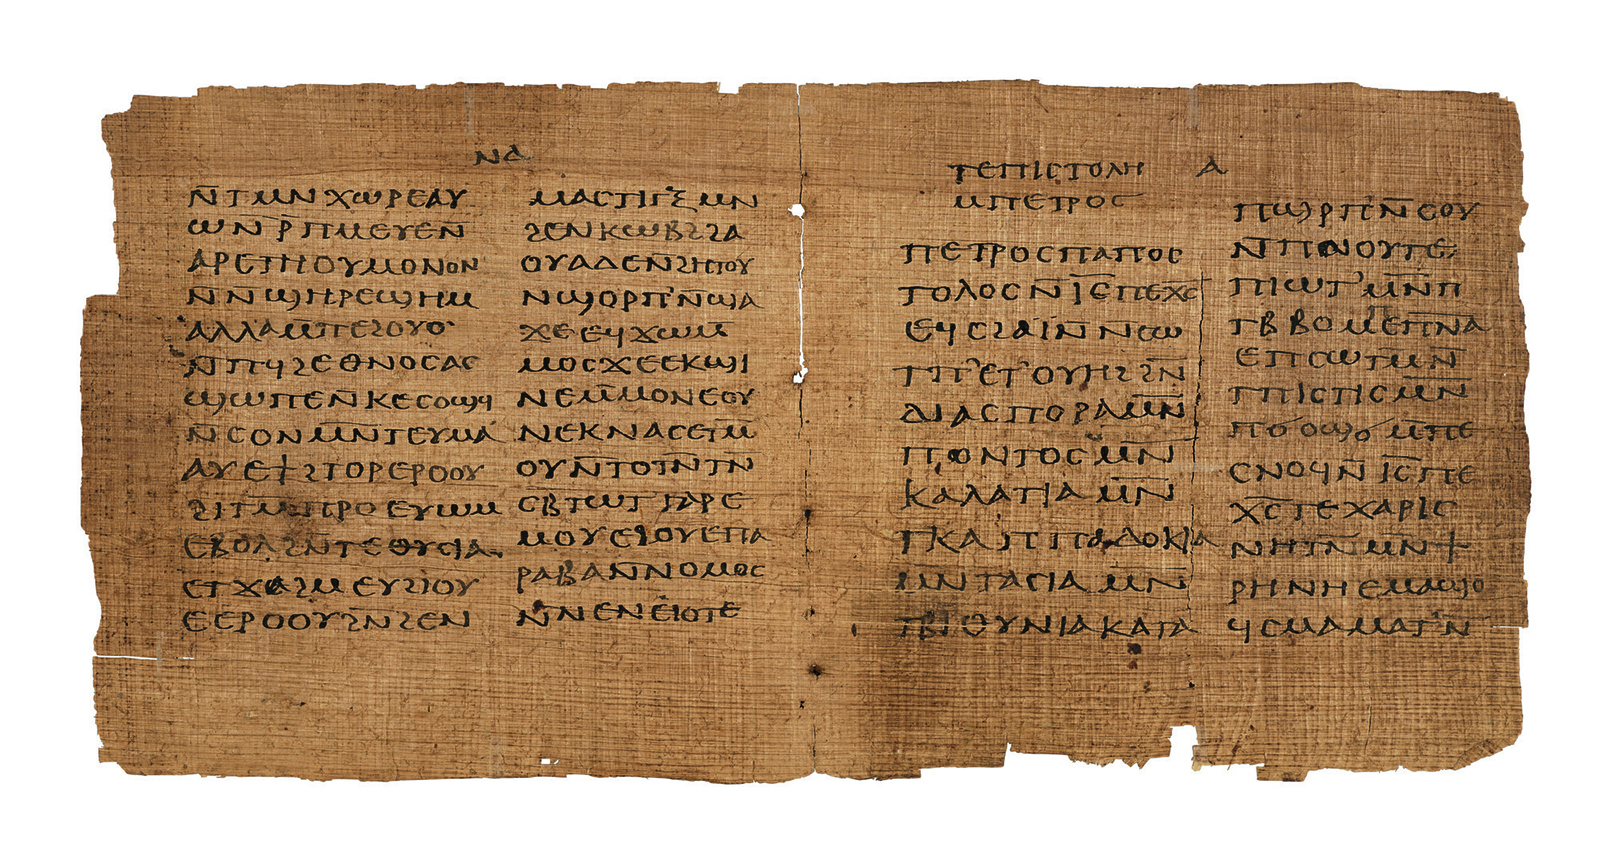 ⲛⲁ
ⲛ̄ⲧⲙⲛⲭⲱⲣⲉⲁⲩ
ⲱⲛⲣ̄ⲡⲙⲉⲩⲉⲛ̄
ⲁⲣⲉⲧⲏⲟⲩⲙⲟⲛⲟⲛ
ⲛ̄ⲛ̄ϣⲏⲣⲉϣⲏⲙ
ⲁⲗⲗⲁⲙ̄ⲡⲉϩⲟⲩⲟ
ⲛ̄ⲡϥϩⲉⲑⲛⲟⲥⲁⲥ
ϣⲱⲡⲉⲛ̄ⲕⲉⲥⲟϣϥ
ⲛ̄ⲥⲟⲛⲙⲛ̄ⲧⲉⲩⲙⲁ
ⲁⲩⲉϯϩⲧⲟⲣⲉⲣⲟⲟⲩ
ϩⲓⲧⲙ̄ⲡⲣⲟⲉⲩⲱⲙ
ⲉⲃⲟⲗϩⲛ̄ⲧⲉⲑⲩⲥⲓⲁ
ⲉⲧϫⲁϩⲙⲉⲩϩⲓⲟⲩ
ⲉⲉⲣⲟⲟⲩϩⲛ̄ϩⲉⲛ
ⲙⲁⲥⲧⲓⲅⲝⲙⲛ
ϩⲉⲛⲕⲱⲃϩϩⲁ
ⲟⲩⲁⲇⲉⲛϩⲏⲧⲟⲩ
ⲛϣⲟⲣⲡ̄ⲛ̄ϣⲁ
ϫⲉⲉϥϫⲱⲙ̄
ⲙⲟⲥϫⲉⲉⲕϣⲓ
ⲛⲉⲙ̄ⲙⲟⲛⲉⲟⲩ
ⲛⲉⲕⲛⲁⲥⲉⲧⲙ̄
ⲟⲩⲛ̄ⲧⲟⲧⲛ̄ⲧⲛ̄
ⲥⲃⲧⲱⲧⲅⲁⲣⲉ
ⲙⲟⲩⲉϩⲟⲩⲉⲡⲁ
ⲣⲁⲃⲁⲛ̄ⲛⲟⲙⲟⲥ
ⲛ̄ⲛⲉⲛⲉⲓⲟⲧⲉ
ⲧⲉⲡⲓⲥⲧⲟⲗⲏ ⲁ
ⲙⲡⲉⲧⲣⲟⲥ
ⲡⲉⲧⲣⲟⲥⲡⲁⲡⲟⲥ
ⲧⲟⲗⲟⲥⲛ̄ⲓ̄ⲥ̄ⲡⲉⲭ̄ⲥ̄
ⲉϥⲥϩⲁⲓ̈ⲛ̄ⲛⲥⲱ
ⲧⲡ̄ⲉⲧⲟⲩⲏϩϩⲛ̄
ⲇⲓⲁⲥⲡⲟⲣⲁⲙⲛ̄
ⲡⲟⲛⲧⲟⲥⲙⲛ̄
ⲕⲁⲗⲁⲧⲓⲁⲙⲛ̄
ⲧⲕⲁⲡⲡⲁⲇⲟⲕⲓⲁ
ⲙⲛ̄ⲧⲁⲥⲓⲁⲙⲛ̄
ⲧⲃⲓⲑⲩⲛⲓⲁⲕⲁⲧⲁ
ⲡϣⲣⲡ̄ⲛ̄ⲥⲟⲩ
ⲛ̄ⲡⲛⲟⲩⲧⲉ
ⲡⲓⲱⲧⲙⲛ̄ⲡ
ⲧⲃⲃⲟⲙ̄ⲉⲡ̄ⲛ̄ⲁ
ⲉⲡⲥⲱⲧⲙ̄ⲛ̄
ⲧⲡⲓⲥⲧⲓⲥⲙⲛ
ⲡϭⲟϣϭⲙ̄ⲡⲉ
ⲥⲛⲟϥⲛ̄ⲓ̄ⲥ̄ⲡⲉ
ⲭ̄ⲥ̄ⲧⲉⲭⲁⲣⲓⲥ
ⲛⲏⲧⲛ̄ⲙⲛ̄ϯ
ⲣⲏⲛⲏⲉⲙⲁϣⲟ
ϥⲥⲙⲁⲙⲁⲧⲛ̄